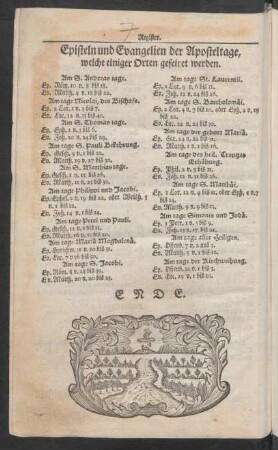 Register.
Episteln und Evangelien der Aposteltage,
welche einiger Orten gefeiret werden.
Am S. Andreas tage.
Ep. Röm. 10 v. 8 bis 18.
Ev. Matth. 4 v. 18 bis 22.
Am tage Nicolai, des Bischofs.
Ep. 2 Cor. 1 v. 3 bis 7.
Ev. Luc. 12 v. 35 bis 40.
Am S. Thomas tage.
Ep. Eph. 1 v. 3 bis 6.
Ev. Joh. 20 v. 24 bis 29.
Am tage S. Pauli Bekehrung.
Ep. Gesch. 9 v. 1 bis 22.
Ev. Matth. 19 v. 27 bis 30.
Am S. Matthias tage.
Ep. Gesch. 1 v. 15 bis 26.
Ev. Matth. 11 v. 25 bis 30.
Am tage Philippi und Jacobi.
Ep. Ephes. 2 v. 19 bis 22. oder Weish. 5
v. 1 bis
Ev. Joh. 14 v. 1 bis
Am tage Petri und Pauli.
Ep. Gesch. 12 v. 1 bis 11.
Ev. Matth. 16 v. 13 bis
Am tage Mariä Magdalenä.
Ep. Sprichw. 31 v. 10 bis 31.
Ev. Luc. 7 v. 36 bis 50.
Am tage S. Jacobi.
Ep. Röm. 8 v. 28 bis
Ev. Matth. 20 v. 20 bis 23.
Am tage St. Laurentii.
Ep. 2 Cor. 9 v. 6 bis
Ev. Joh. 12 v. 24 bis 26.
Am tage S. Bartholomäi.
Ep. 2 Cor. 4 v. 7 bis 10. oder Eph.
bis 22.
Ev. Luc. 22 v. 24 bis 30.
Am tage der geburt Mariä.
Ep. Sir. 24 v. 22 bis
Ev. Matth. 1 v. 1 bis 16.
Am tage des heil. Creutzes
Erhöhung.
Ep. Phil. 2 v. 5 bis
Ev. Joh. 12 v. 31 bis 36.
Am tage S. Matthäi.
Ep. 1 Cor. 12 v. 4 bis 11. oder Eph. 4 v. 7
bis 14.
Ev. Matth. 9 v. 9 bis 13.
Am tage Simonis und Judä.
Ep. 1 Petr. 1 v. 3 bis 9.
Ev. Joh. 15 v. 17 bis
Am tage aller Heiligen.
Ep. Offenb. 7 v. 2
Ev. Matth. 5 v. 1 bis 12.
Am tage der Kirchweihung.
Ep. Offenb. 21 v. 1 bis
Ev. Luc. 19 v. 1 bis 10.
E N D E.